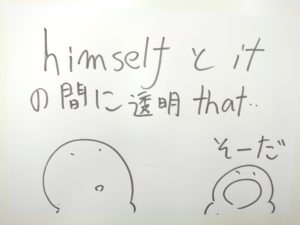 himself と it
の間に透明 that‥
そーだ